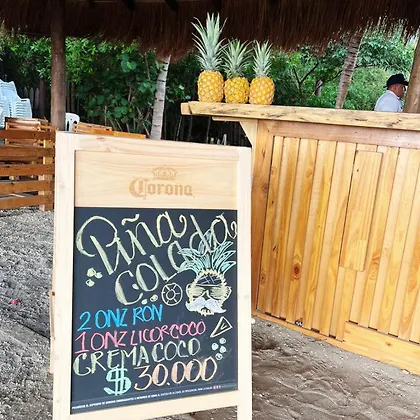 Corona
Piña
Colada
2 ONZ RON
1 ONZ LICOR COCO
CREMA COCO
$ 30.000